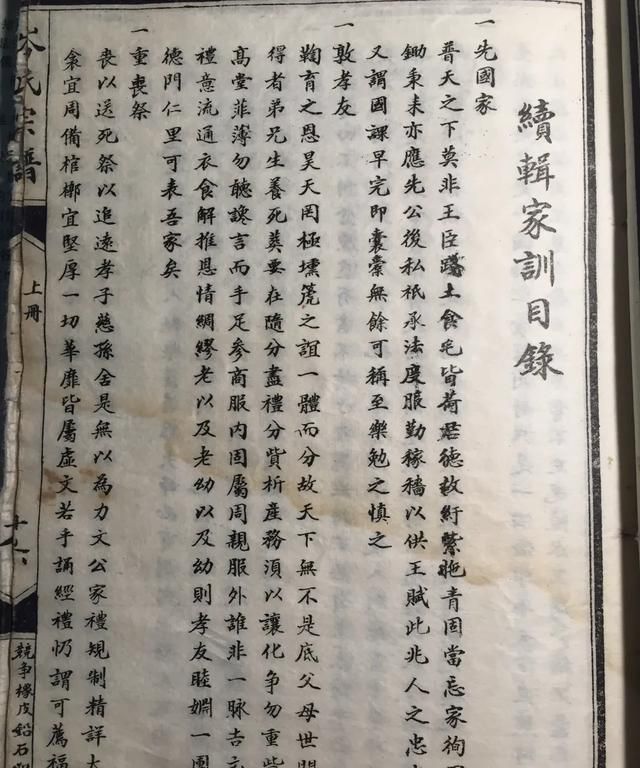 續輯家訓目錄
一先國家
普天之下莫非王臣踐土食毛皆荷君德故紆紫拖青固當忘家徇國
鋤秉耒亦應先公後私祇承法度服勤稼穡以供王賦此兆人之忠也
又謂國課早完即囊橐無餘可稱至樂勉之慎之
一敦孝友
鞠育之恩昊天罔極壎箎之誼一體而分故天下無不是底父母世間
得者弟兄生養死葬要在隨分盡禮分貲析產務須以讓化争勿重
高堂菲薄勿聽讒言而手足參商服內固屬周親服外誰非一脉吉
禮意流通衣食解推恩情綢繆老以及老幼以及幼則孝友睦婣一
德門仁里可表吾家矣
一重喪祭
喪以送死祭以追遠孝子慈孫舍是無以為力文公家禮規制精詳大
衾宜周備棺槨宜堅厚一切華靡皆屬虛文若乎誦經禮懺謂可薦福
岑氏宗譜
上冊
競爭橡皮鉛石